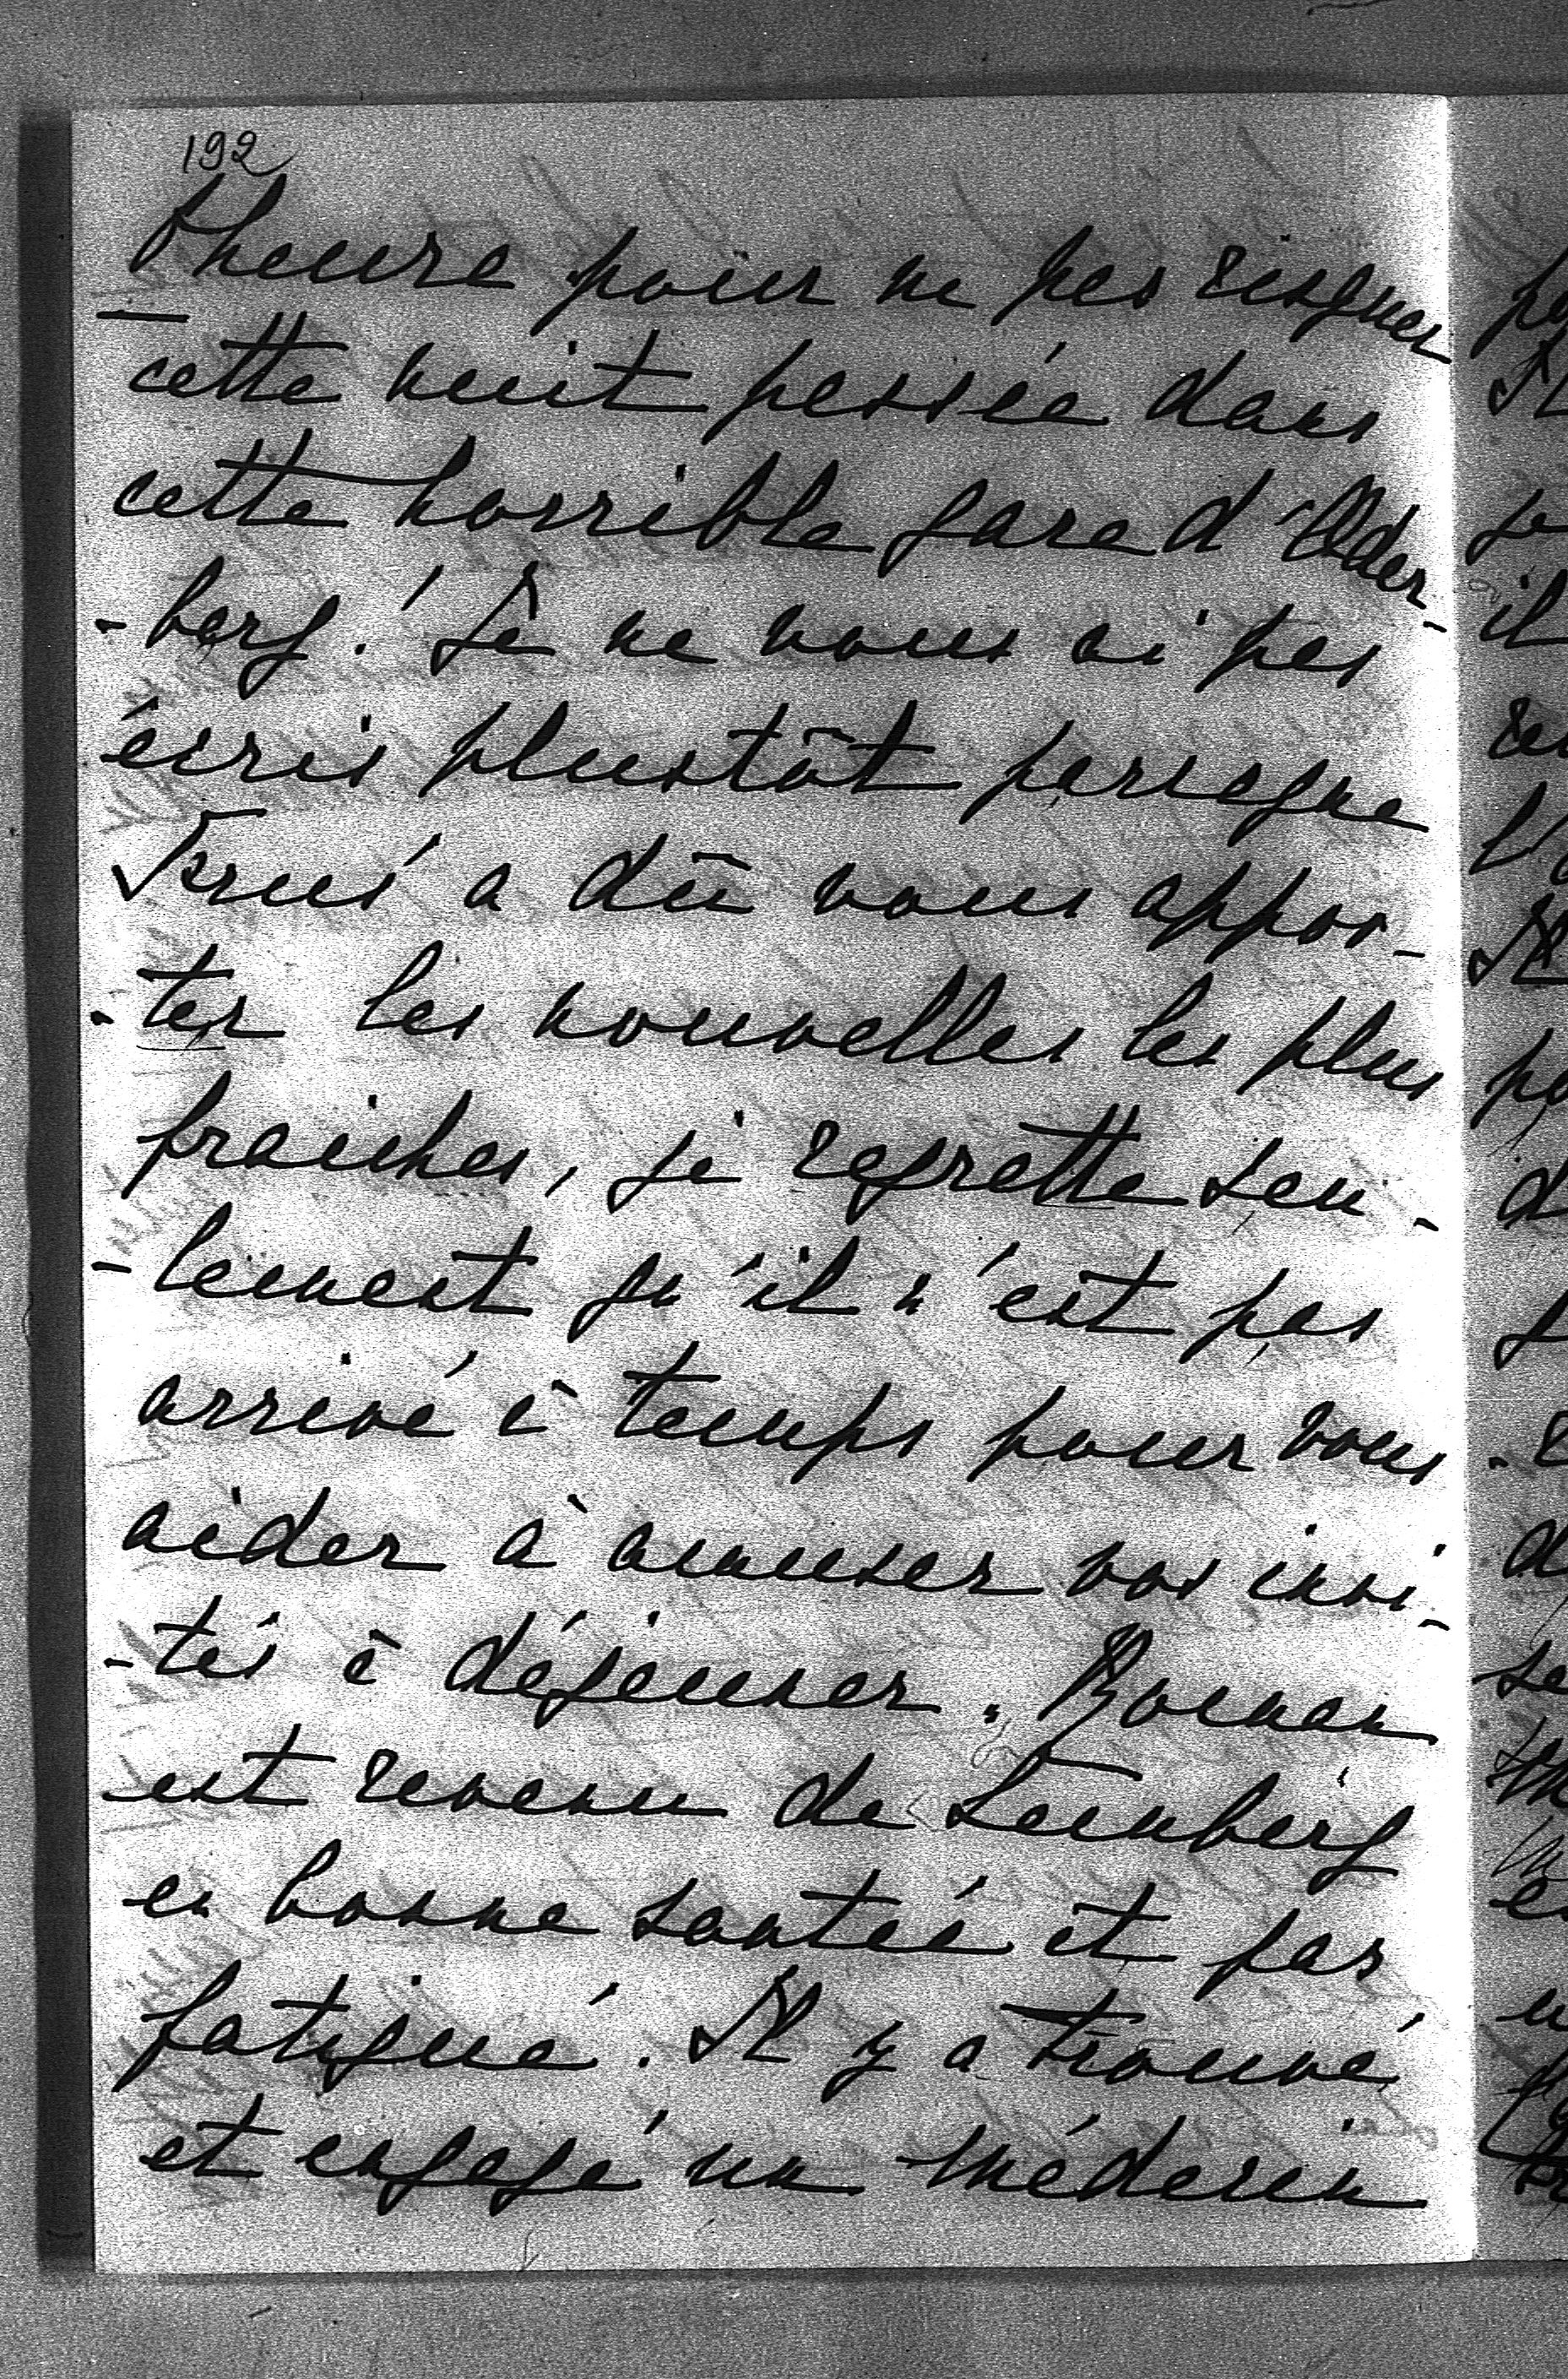 192
l'heure pour ne pas risquer
cette nuit passée dans
cette horrible gare d'Oder-
-berg! Je ne vous ai pas
écris plustôt parceque
a dû vous appor-
-ter les nouvelles les plus
fraiches, je regrette seu-
-lement qu'il n'est pas
arrivé à temps pour vous
aider à amuser vos invi-
-tés à déjeuner. Roman
est revenu de Lemberg
en bonne santée et pas
fatigué. Il y a trouvé
et engagé un médecin